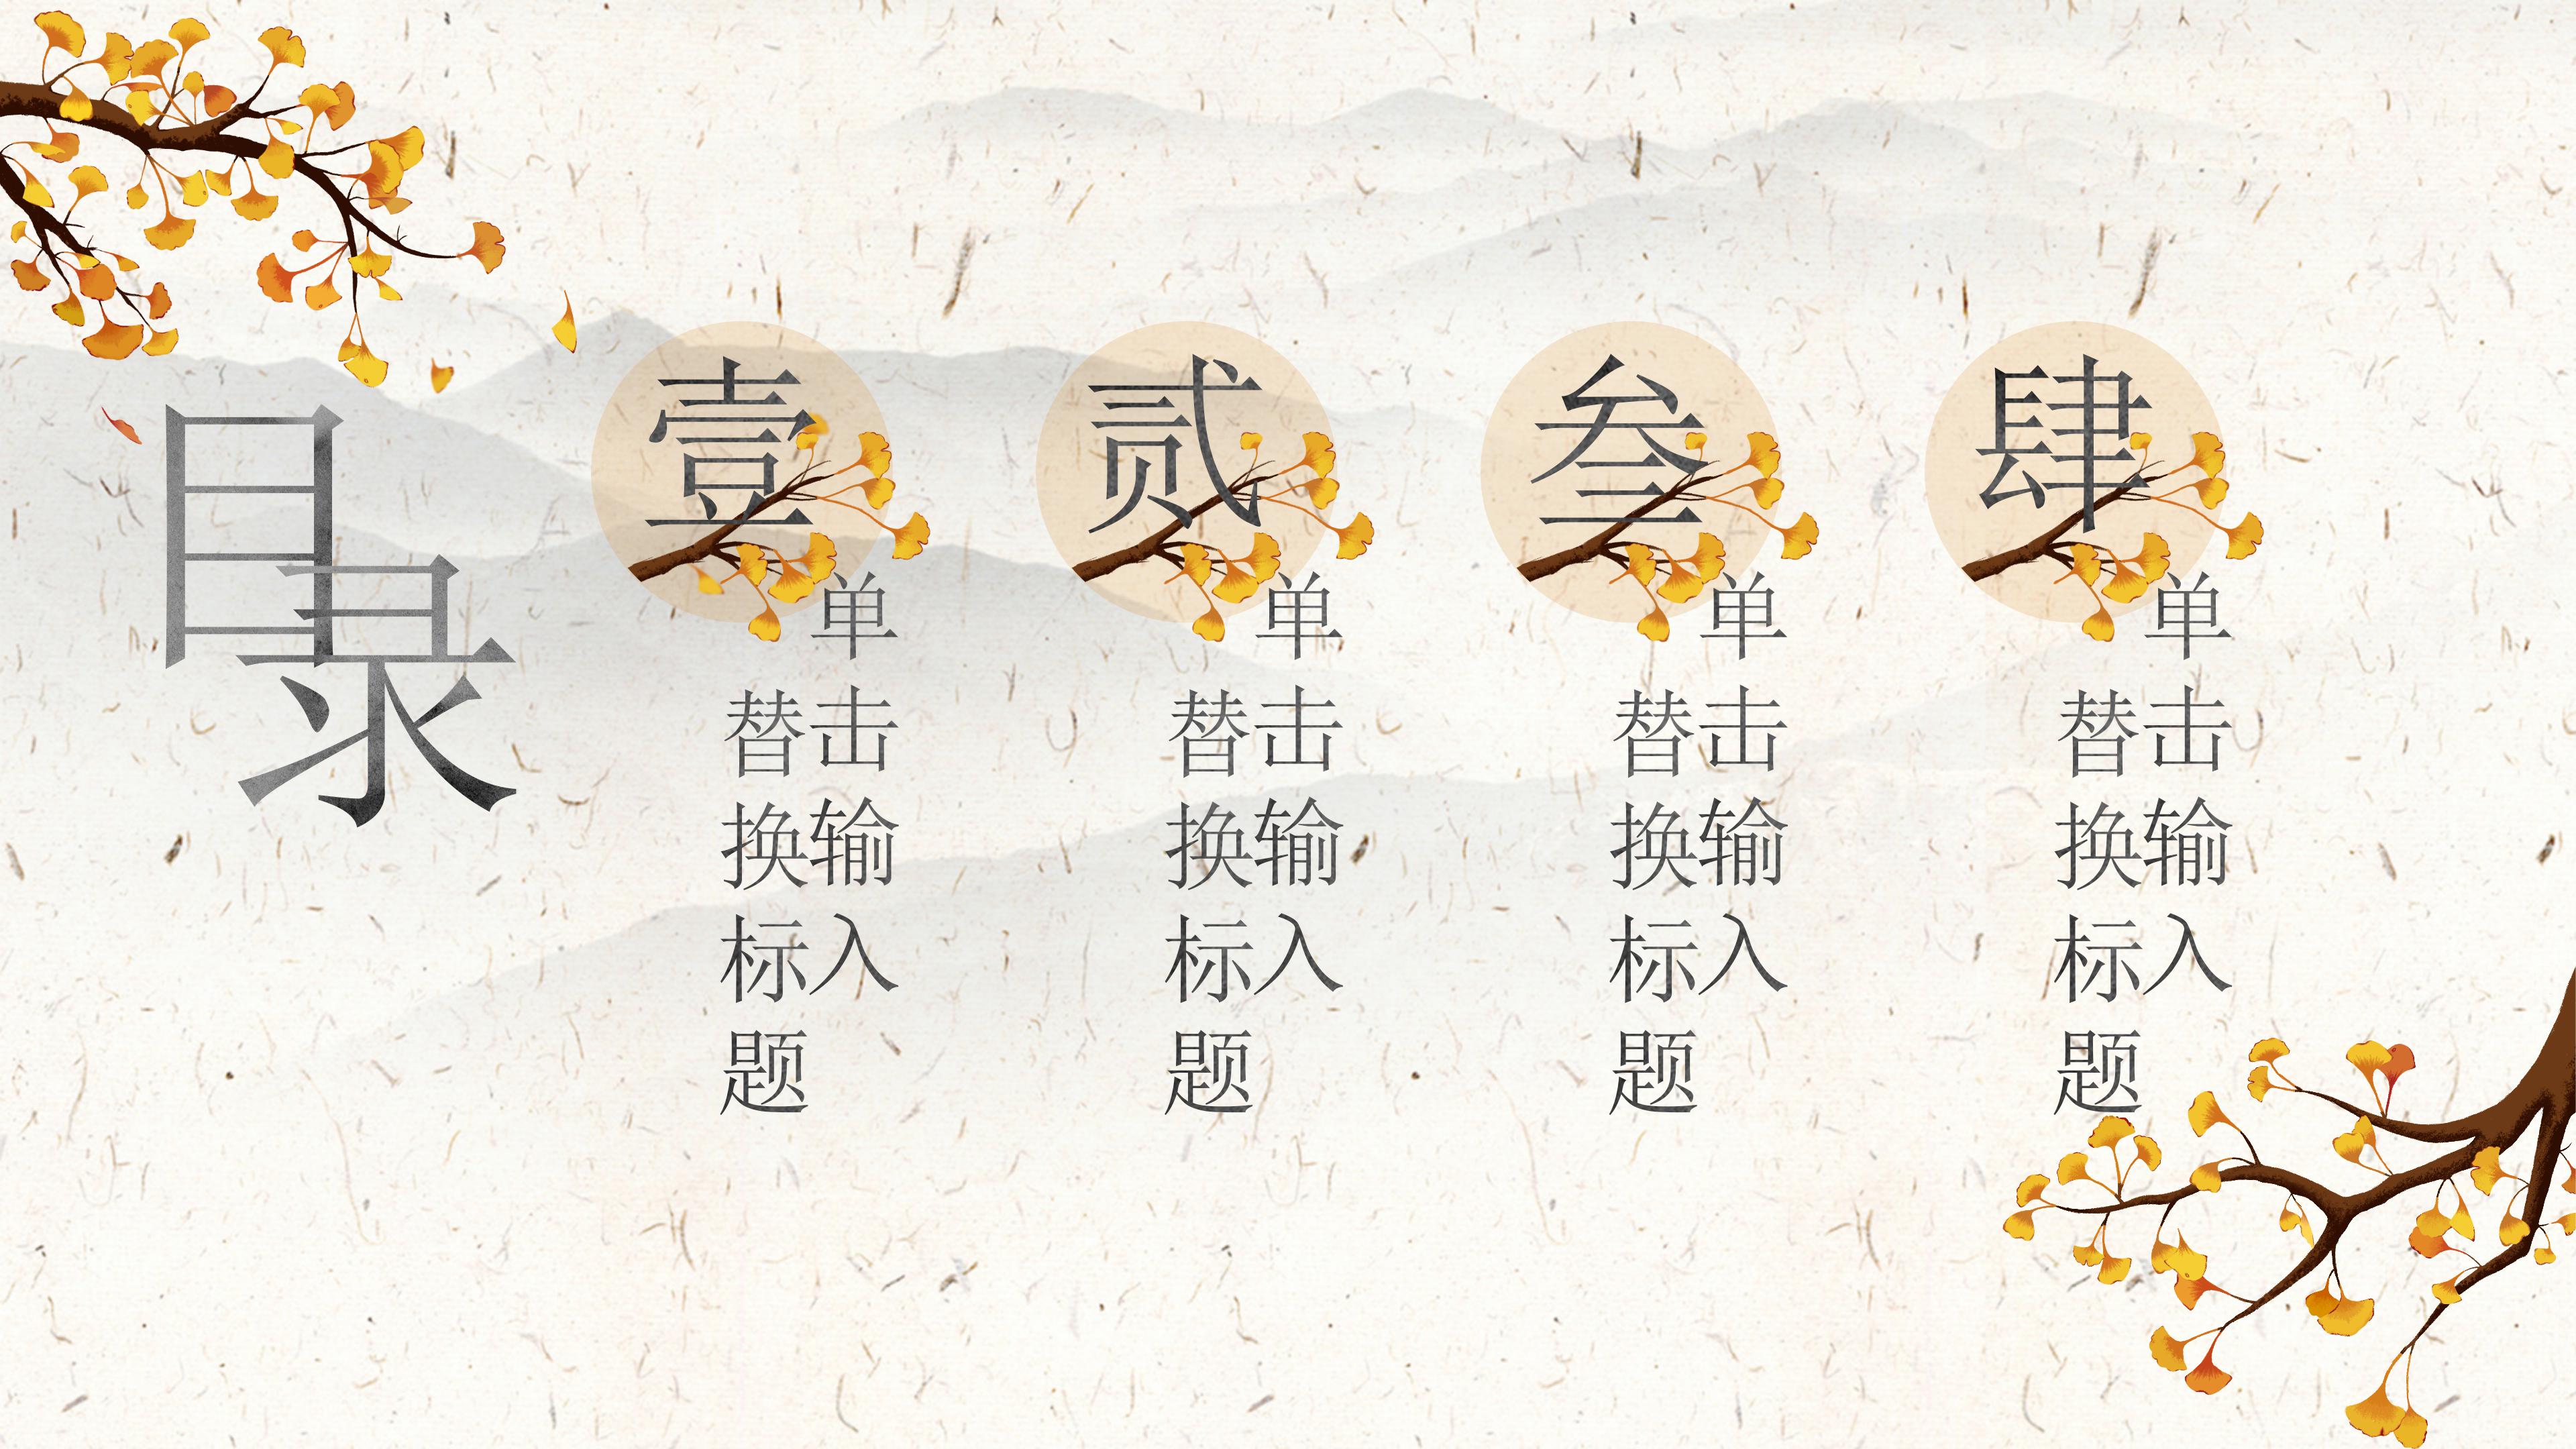 目录
壹
单击输入
替换标题
贰
单击输入
替换标题
叁
单击输入
替换标题
肆
单击输入
替换标题